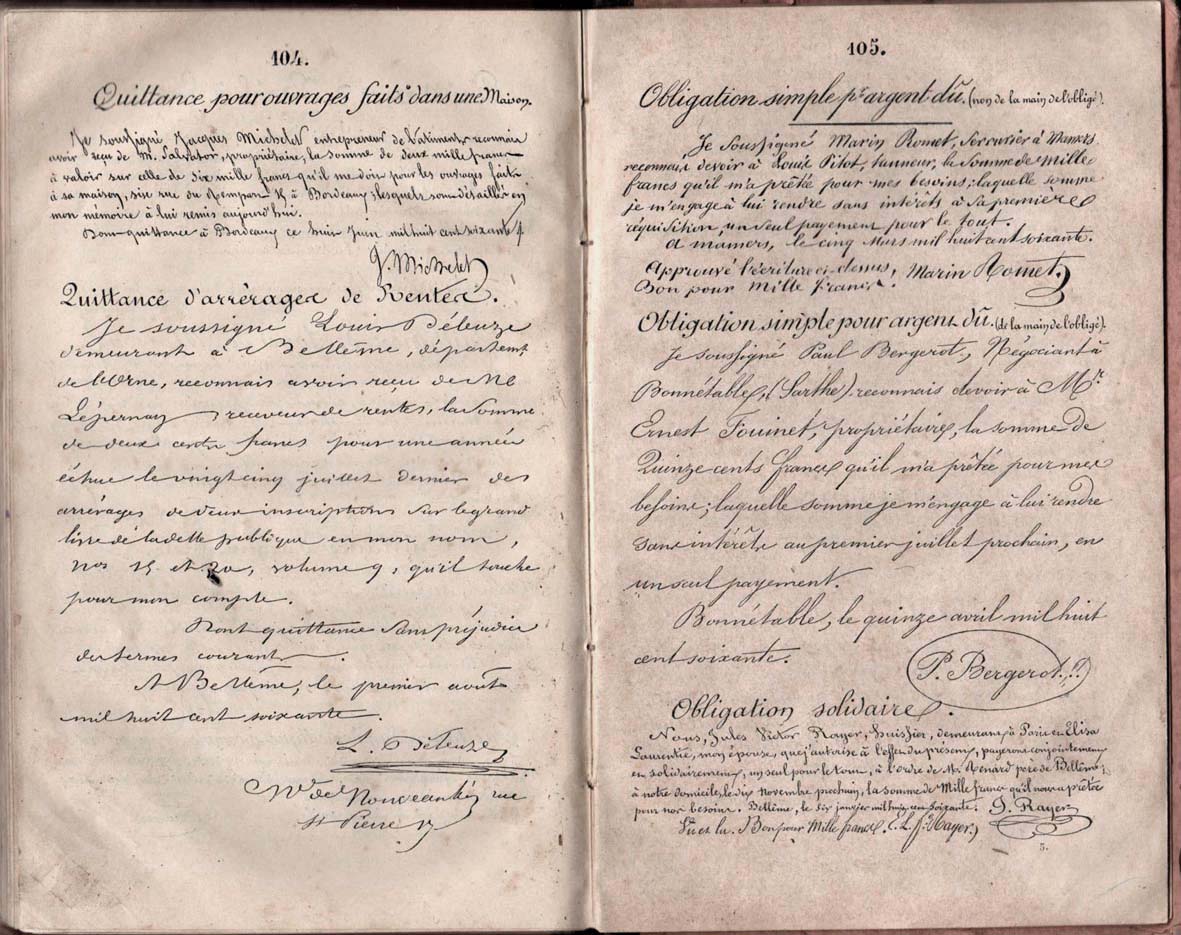 104.
Quittance pour ouvrages faits dans une Maison.
Je soussigné Jacques Michelet entrepreneur de bâtiments reconnais
avoir reçu de M. Salvator, propriétaire, la somme de deux mille francs
à valoir sur celle de dix mille francs qu'il me doit pour les ouvrages faits
à sa maison, sise rue du Rempart à Bordeaux; lesquels sont détaillés en
mon mémoire à lui remis aujourd'hui.
Dont quittance à Bordeaux ce huit Juin mil huit cent soixante
J. Michelet
Quittance d'arrérages de Rentes.
Je soussigné Louis Déleuze
demeurant à Bellême, départemt
de l'Orne, reconnais avoir reçu de
Lépernay receveur de rentes, la somme
de deux cents francs pour une année
échue le vingt cinq juillet dernier des
arrérages de deux inscriptions sur le grand
livre de la dette publique en mon nom,
nos 15 et 20, volume 9, qu'il touche
pour mon compte.
Dont quittance sans préjudice
des termes courants.
A Bellême, le premier août
mil huit cent soixante.
L. Déleuze
Md de Nouveautés rue
St Pierre
105.
Obligation simple pr argent dû. (non de la main de l'obligé).
Je soussigné Marin Romet, Serrurier à Mamers
reconnais devoir à Louis Pitot, tanneur, la Somme de mille
francs qu'il m'a prêtée pour mes besoins; laquelle somme
je m'engage à lui rendre sans intérêts à sa première
réquisition, un seul payement pour le tout.
A mamers, le cinq Mars mil huit cent soixante.
Approuvé l'écriture ci-dessus, Marin Romet.
Bon pour Mille francs.
Obligation simple pour argent dû. (de la main de l'obligé).
Je soussigné Paul Bergerot, Négociant à
Bonnétable, (Sarthe) reconnais devoir à Mr
Ernest Fouinet, propriétaire, la somme de
Quinze cents francs qu'il m'a prêtée pour mes
besoins; laquelle somme je m'engage à lui rendre
sans intérêts au premier juillet prochain, en
un seul payement.
Bonnétable, le quinze avril mil huit
cent soixante.
P. Bergerot.
Obligation solidaire.
Nous, Jules Victor Rayer, huissier, demeurant à Paris et Elisa
Laurentie, mon épouse, que j'autorise à l'effet du présent, payerons conjointement
et solidairement, un seul pour le tout, à l'ordre de M. Renard père de Bellême,
à notre domicile, le dix Novembre prochain, la somme de Mille francs qu'il nous a prêtée
pour nos besoins. Bellême, le six janvier mil huit cent soixante. J. Rayer
Vu et lu. Bon pour Mille francs. E. L. fe Rayer
5.